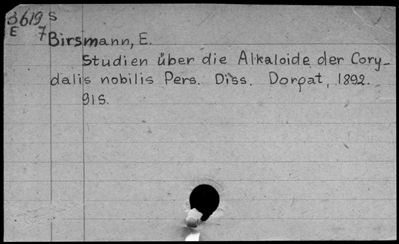 3619 S
E 7
Birsmann, E.
Studien über die Alkaloide der Cory-
dalis nobilis Pers. Diss. Dorpat, 1892.
91S.